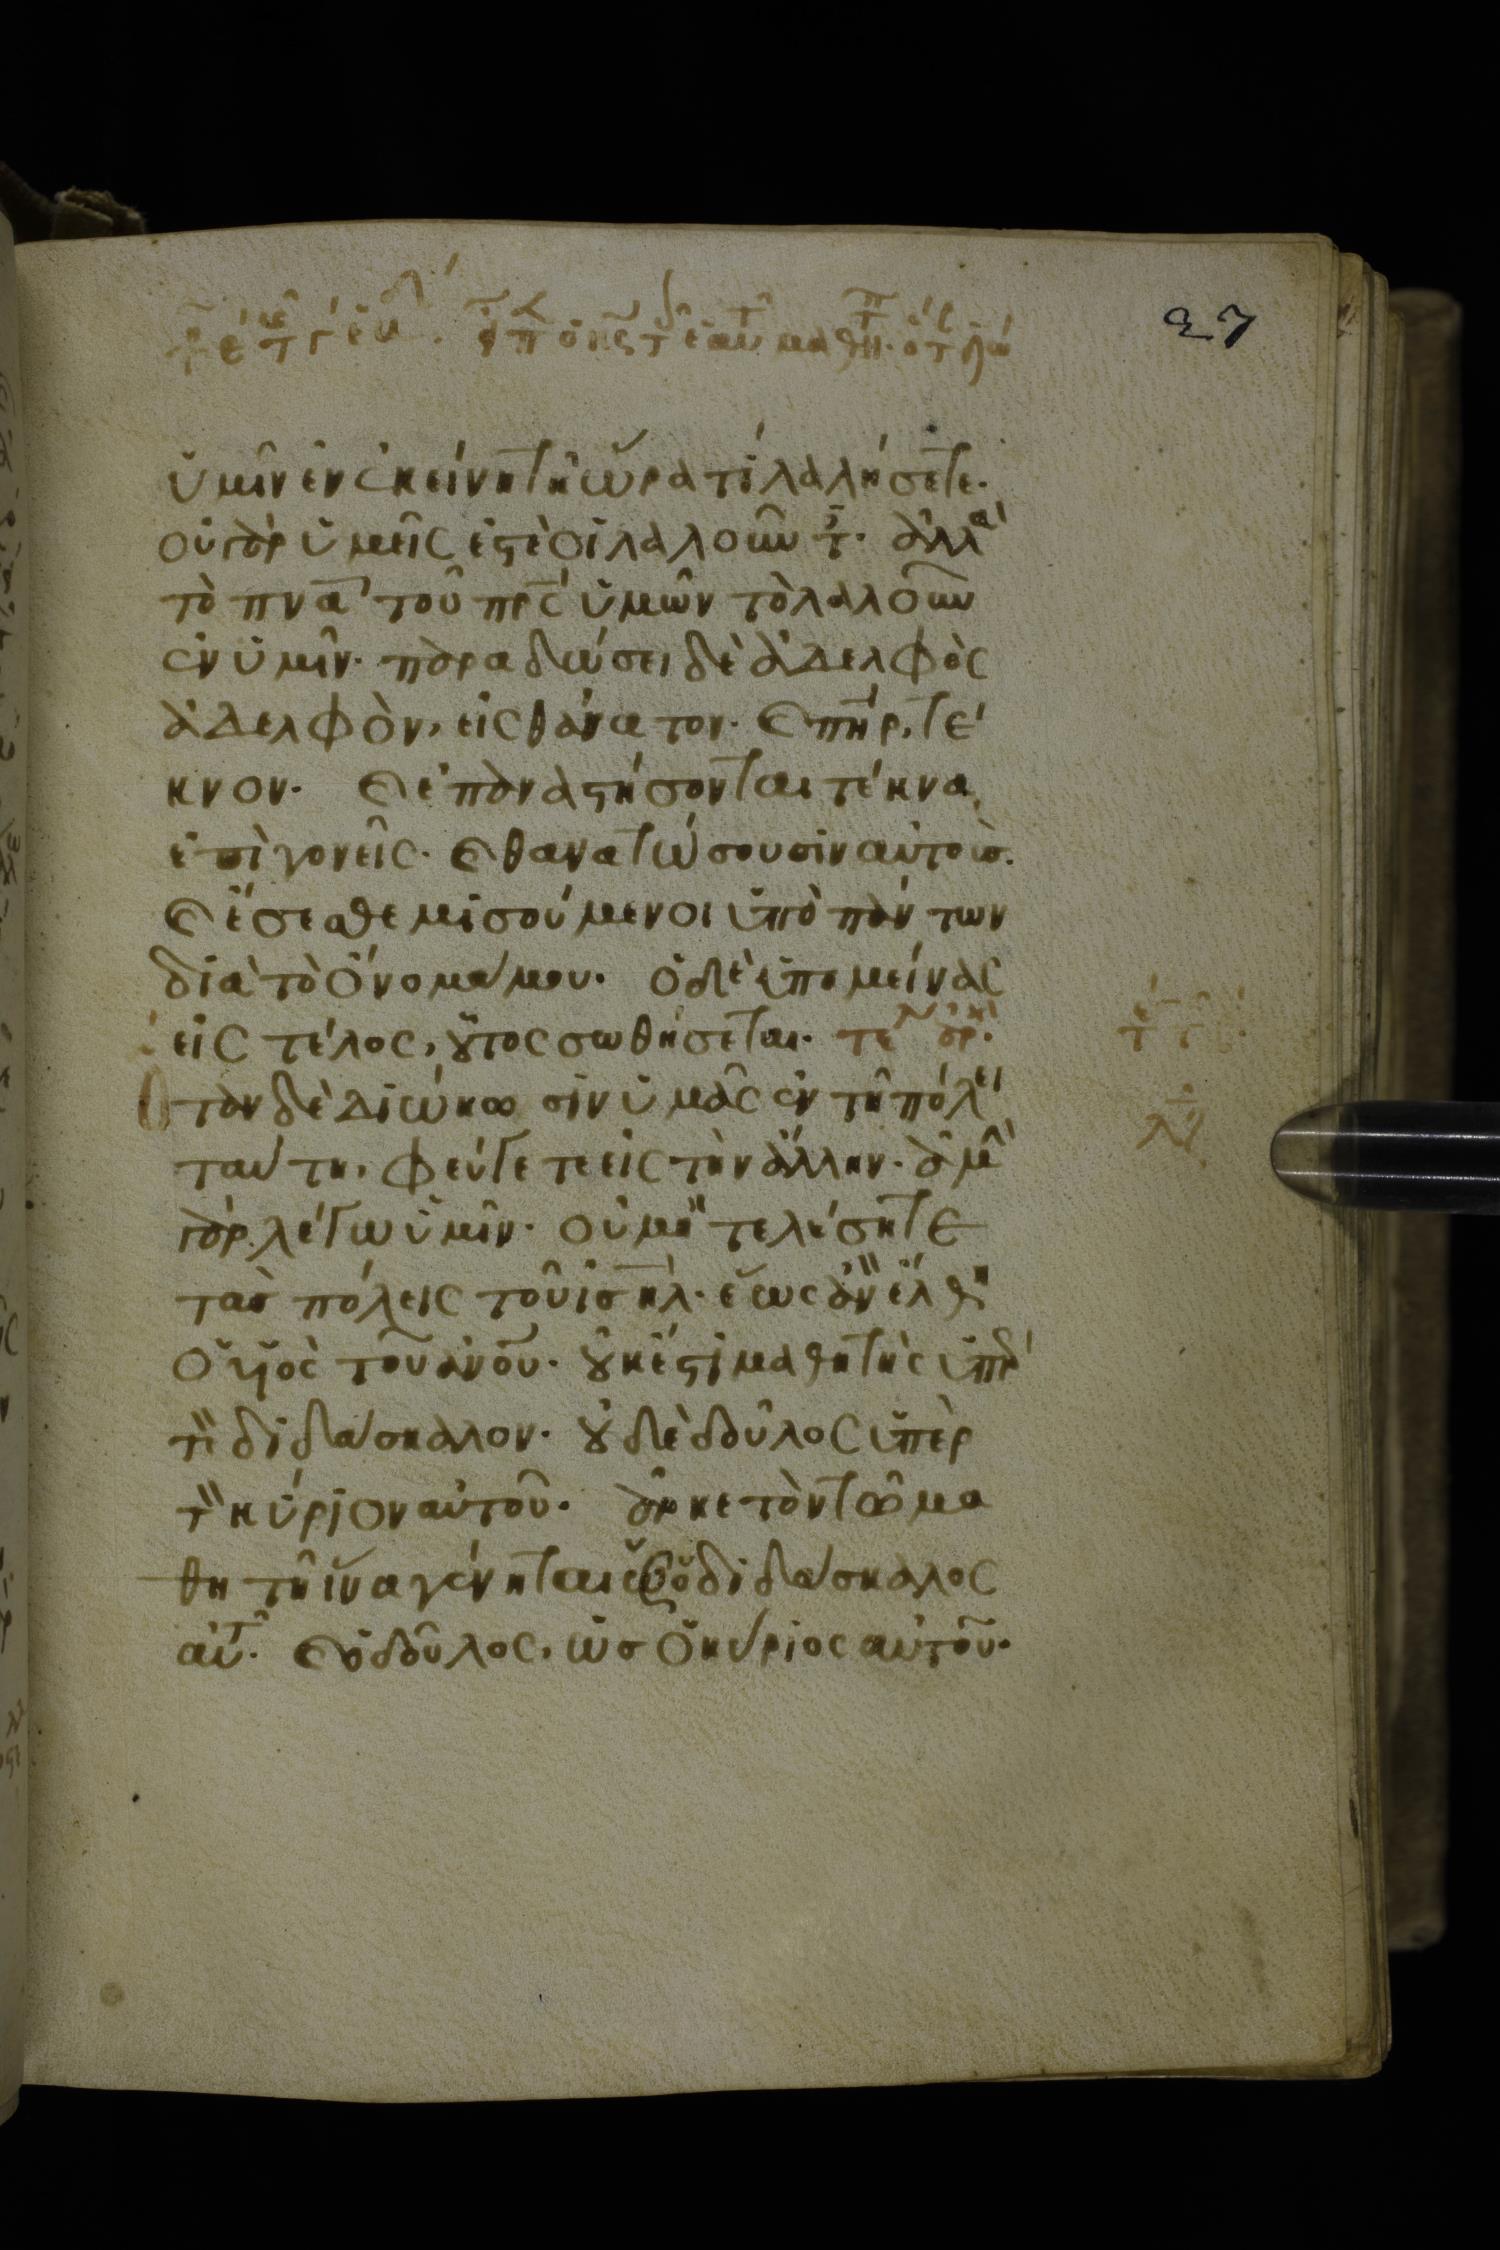 27
ὑμῖν ἐν ἐκείνη τῆ ὥρα τί λαλήσετε·
οὐ γὰρ ὑμεῖς ἐστὲ οἱ λαλοῦντ· ἀλλὰ
τὸ πνα τοῦ πρς ὑμῶν τὸ λαλοῦν
ἐν ὑμῖν· παραδώσει δὲ ἀδελφὸς
ἀδελφὸν, εἰς θάνατον· ϗ πηρ, τέ
κνον· ϗ ἐπαναστήσονται τέκνα
ἐπὶ γονεῖς· ϗ θανατώσουσιν αὐτούσ·
ϗ ἔσεσθε μισούμενοι ὑπὸ πάντων
διὰ τὸ ὄνομά μου· ὁ δὲ ὑπομείνας
εἰς τέλος, οὗτος σωθήσεται· τε
ὅταν δὲ διώκωσιν ὑμᾶς ἐν τῆ πόλει
ταύτη, φεύγετε εἰς τὴν ἄλλην· ἀμὴ
γὰρ λέγω ὑμῖν· οὐ μὴ τελέσητε
τὰσ πόλεις τοῦ ἰσηλ· ἕως ἂν ἔλθη
ὁ υἱὸς τοῦ ἀνου· οὐκ ἔστι μαθητὴς ὑπὲρ
τὸν διδάσκαλον· οὐδὲ δοῦλος ὑπὲρ
τὸν κύριον αὐτοῦ· ἀρκετὸν τῶ μα
θητῆ ἵνα γένηται ὡς ὁ διδάσκαλος
αὐτ· ϗ ὁ δοῦλος, ὡσ ὁ κύριος αὐτοῦ·